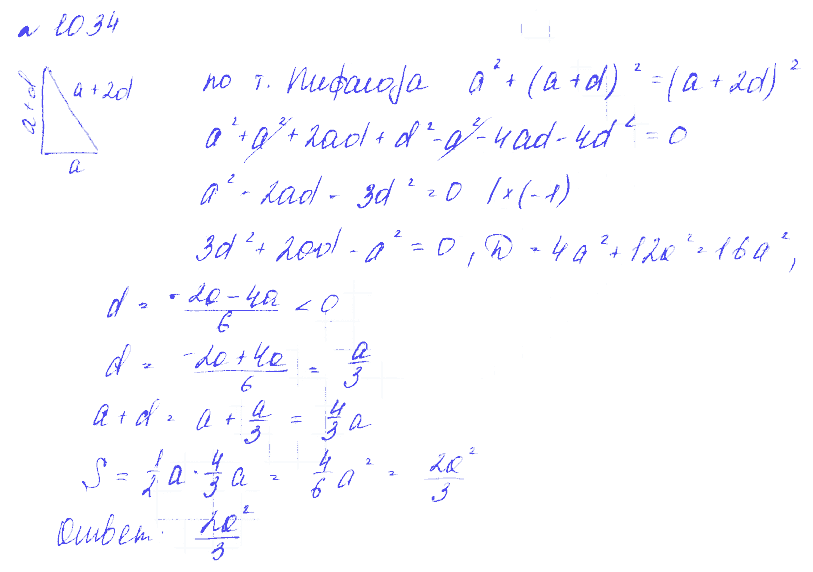 № 1034
a + d
a + 2d
a
по т. Пифагора a² + (a + d)² = (a + 2d)²
a² + a² + 2ad + d² - a² - 4ad - 4d² = 0
a² - 2ad - 3d² = 0 | × (-1)
3d² + 2ad - a² = 0, D = 4a² + 12a² = 16a²,
d = (-2a - 4a)/6 < 0
d = (-2a + 4a)/6 = a/3
a + d = a + a/3 = 4/3 a
S = 1/2 a · 4/3 a = 4/6 a² = 2a²/3
Ответ: 2a²/3